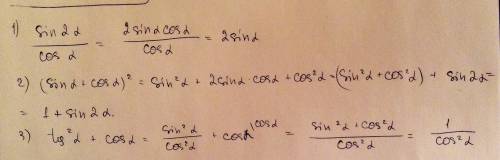 1) sin2α / cosα = 2sinα cosα / cosα = 2sinα
2) (sinα + cosα)² = sin²α + 2sinα · cosα + cos²α = (sin²α + cos²α) + sin2α =
= 1 + sin2α.
3) tg²α + cosα = sin²α / cos²α + cosα^cosα = sin²α + cos²α / cos²α = 1 / cos²α